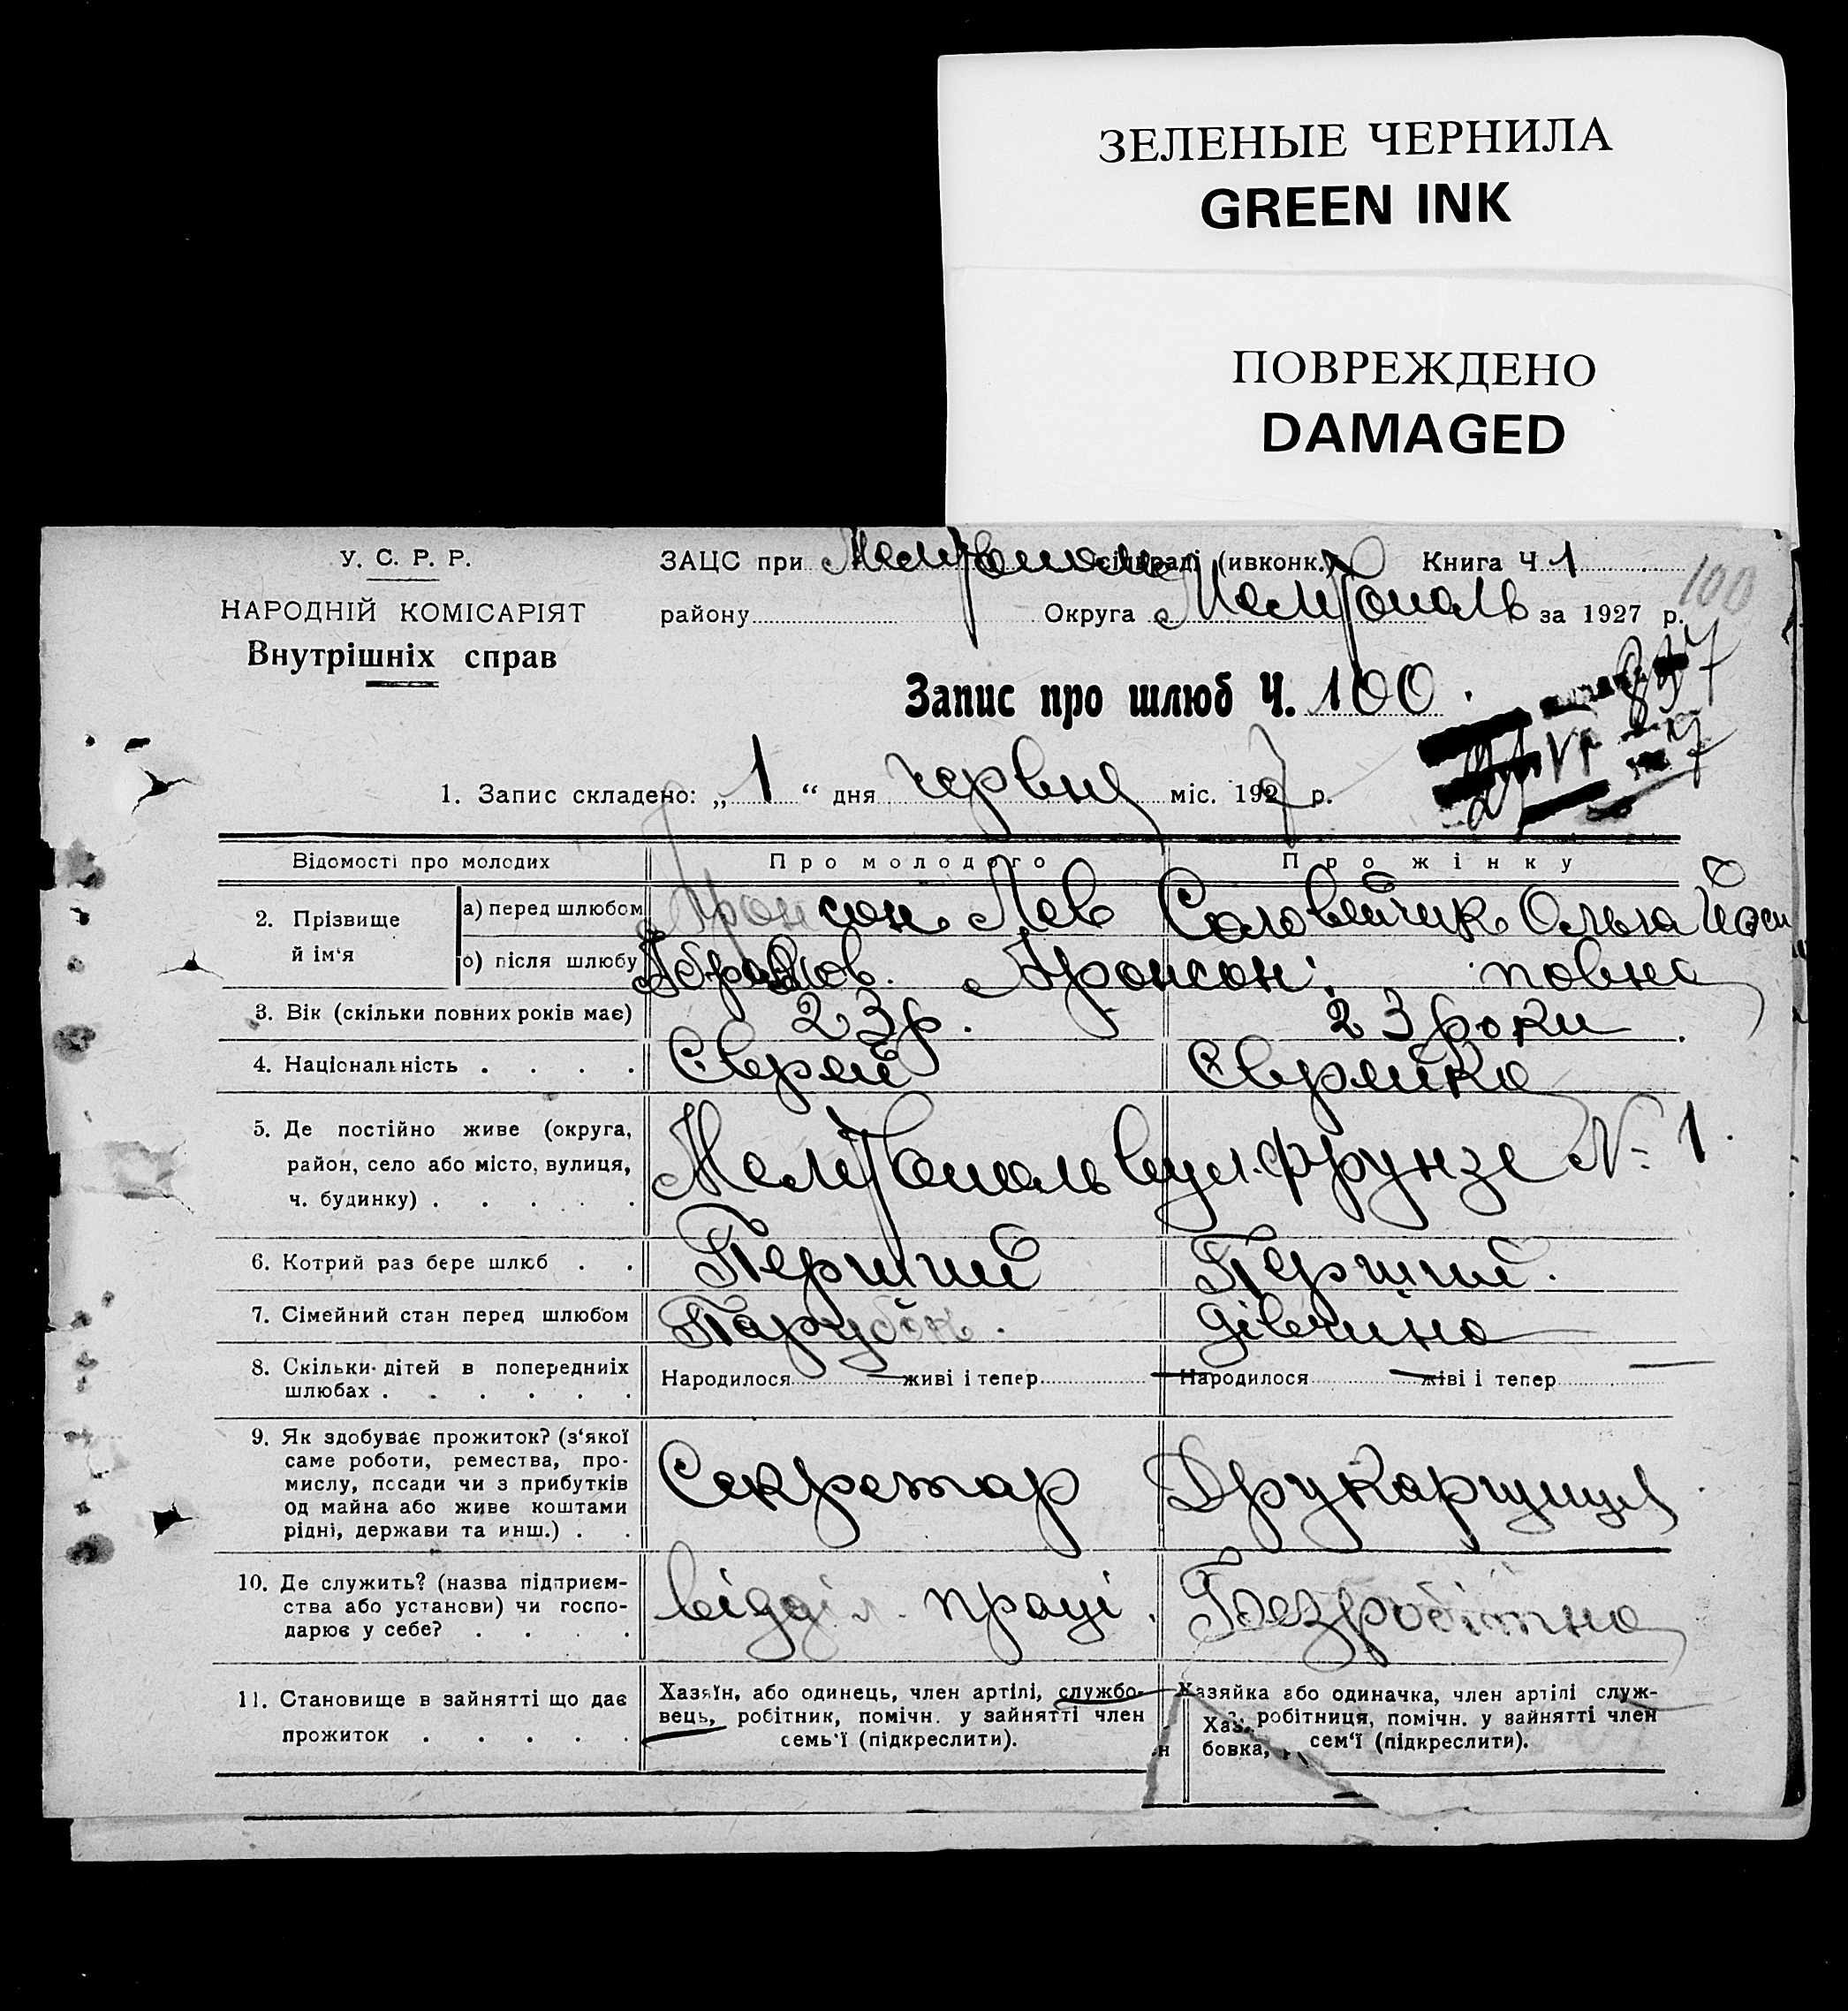 ЗЕЛЕНЫЕ ЧЕРНИЛА
GREEN INK
ПОВРЕЖДЕНО
DAMAGED
У. С. Р. Р.
НАРОДНІЙ КОМІСАРІЯТ
Внутрішніх справ
ЗАЦС при сільраді (ивконк.) Книга Ч 1
100
району Округа Мелітополь за 1927 р.
Запис про шлюб Ч. 100
1. Запис складено: „ 1 “ дня червня міс. 1927 р.
Відомості про молодих Про молодого Про жінку
2. Прізвище й ім‘я а) перед шлюбом Аронсон Лев Соловейчик Ольга Йоси
о) після шлюбу Абрамов. Аронсон. повна
3. Вік (скільки повних років має) 23 р. 23 роки
4. Національність . . . . Єврей Єврейка
5. Де постійно живе (округа,
район, село або місто, вулиця,
ч. будинку) . . . . .
Мелітополь вул. Фрунзе № 1.
6. Котрий раз бере шлюб . . Перший Перший.
7. Сімейний стан перед шлюбом Парубок. дівчина
8. Скільки дітей в попередниіх
шлюбах . . . . . .
Народилося — живі і тепер — Народилося — живі і тепер —
9. Як здобуває прожиток? (з‘якої
саме роботи, ремества, про-
мислу, посади чи з прибутків
од майна або живе коштами
рідні, держави та инш.) . .
Секретар Друкарщиця
10. Де служить? (назва підприєм-
ства або установи) чи госпо-
дарює у себе? . . . .
відділ. праці. Безробітна
11. Становище в зайнятті що дає
прожиток . . . . .
Хазяїн, або одинець, член артілі, службо-
вець, робітник, помічн. у зайнятті член
семь‘ї (підкреслити).
Хазяйка або одиначка, член артілі служ-
робітниця, помічн. у зайнятті член
сем‘ї (підкреслити).
Хаз
бовка,